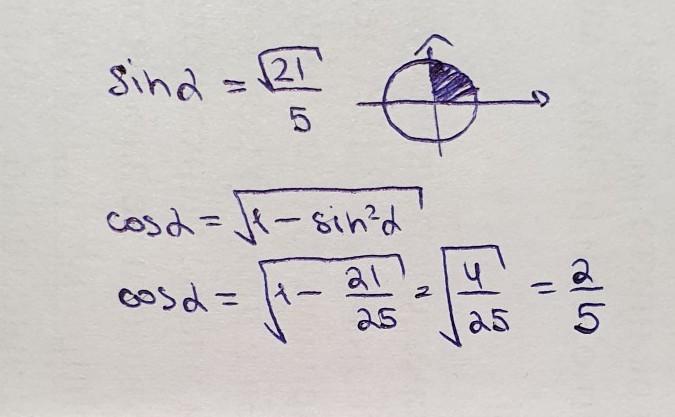 sinα = √21/5
cosα = √(1 − sin²α)
cosα = √(1 − 21/25) = √(4/25) = 2/5